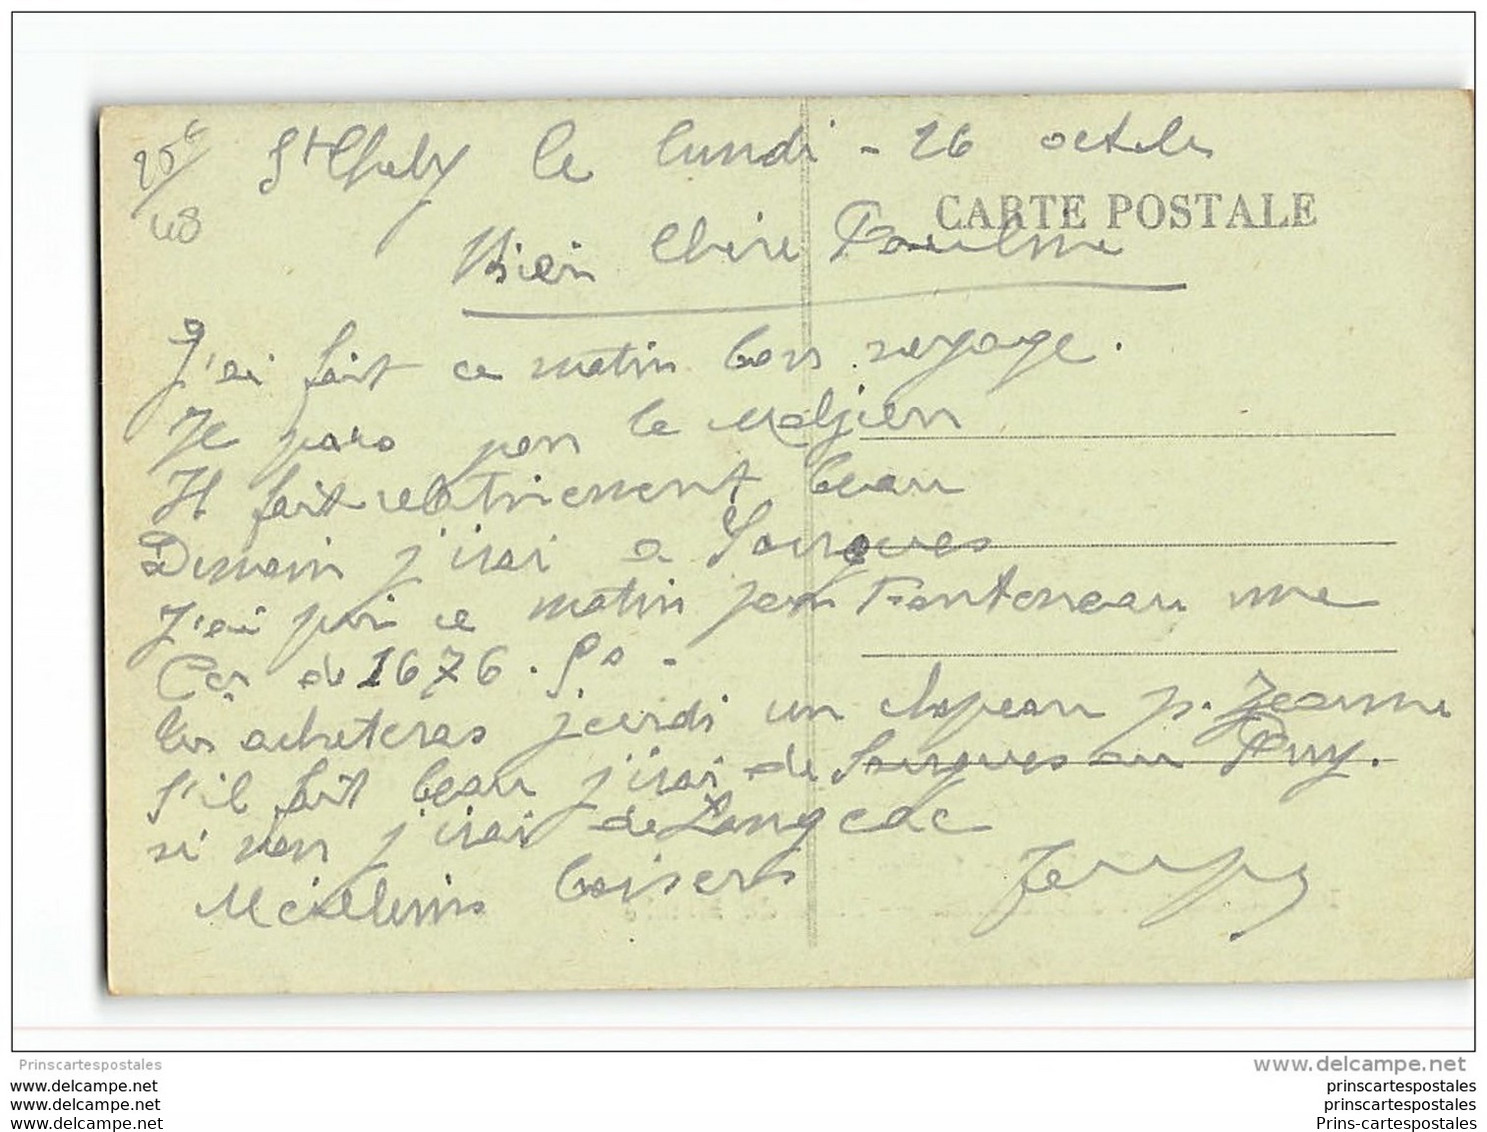 20€
48
St Chely le lundi - 26 octobre
CARTE POSTALE
Bien Chère Pauline
J'ai fait ce matin bon voyage.
Je pars pour le Malzieu
Il fait relativement beau
Demain j'irai a Saugues
J'ai pris ce matin pour Fontoneau une
de 1676.
tu acheteras jeudi un chapeau p. Jeanne
S'il fait beau j'irai de Saugues au Puy.
si non j'irai de Langeac
Meilleurs baisers
Prinscartespostales
www.delcampe.net
www.delcampe.net
prinscartespostales
www.delcampe.net
prinscartespostales
www.delcampe.net
Prins-cartespostales